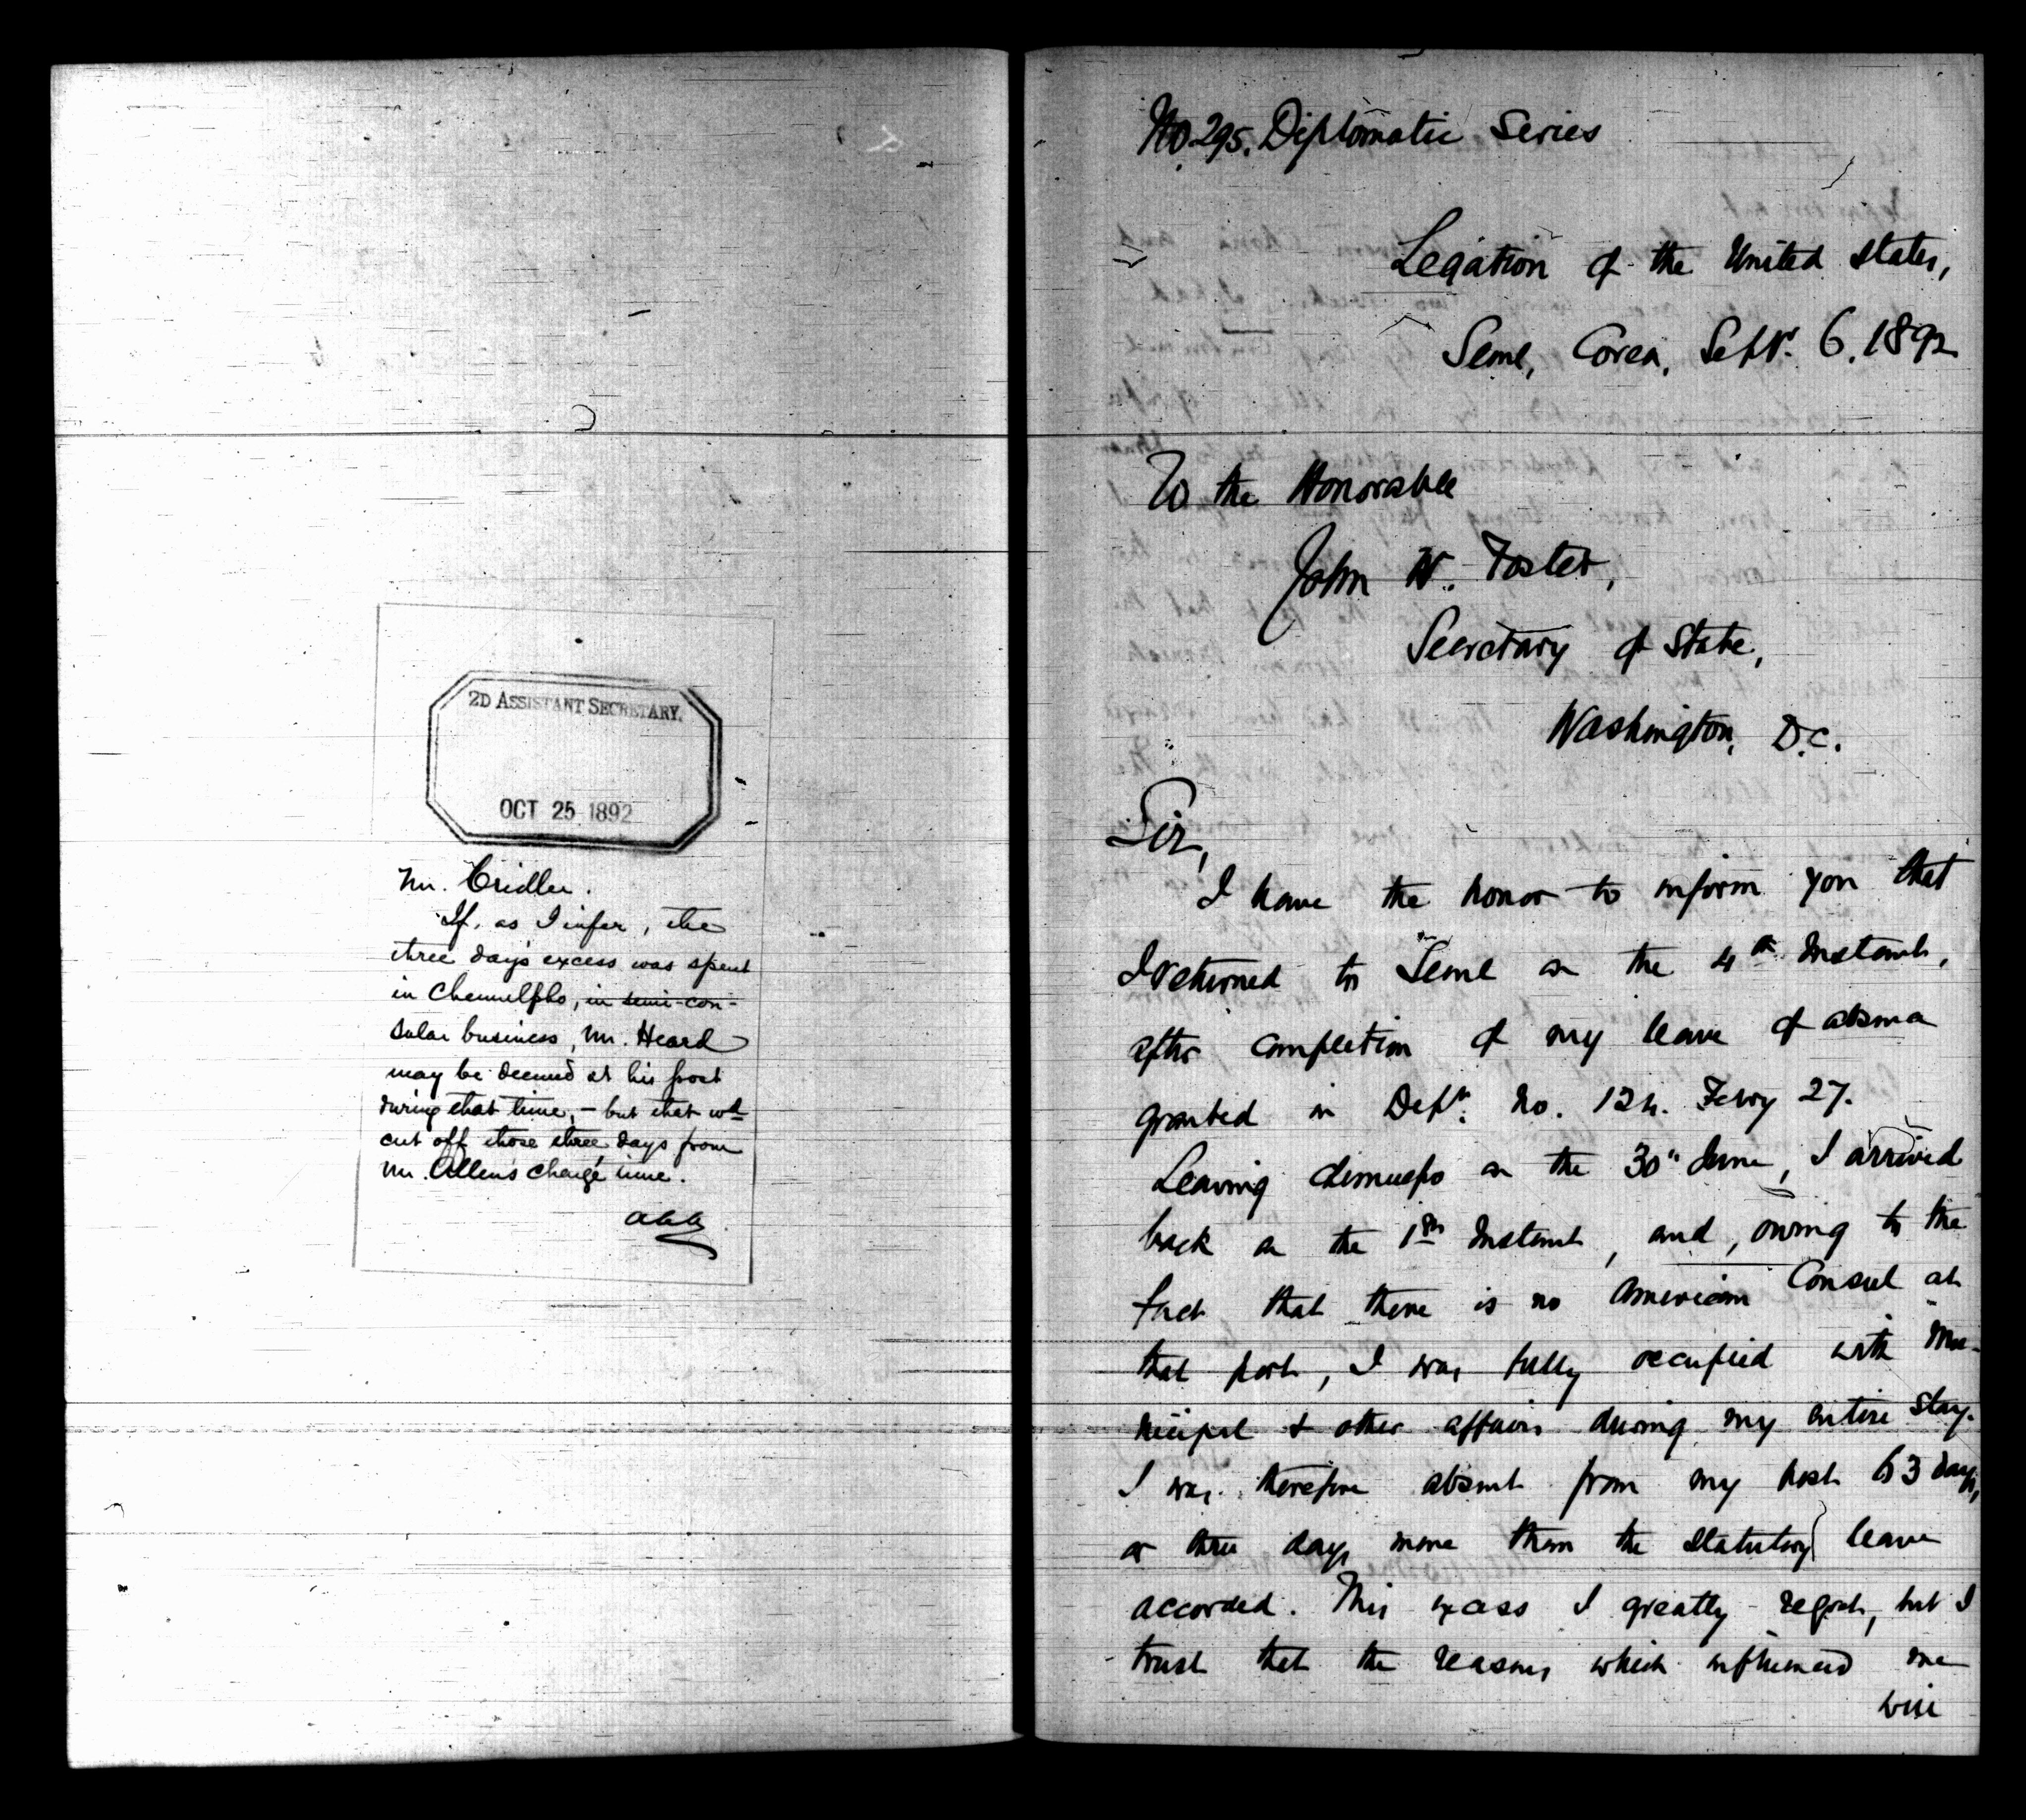 2D ASSISTANT SECRETARY.
OCT 25 1892
Mr. Cridler.
If, as I infer, the
three days excess was spent
in Chemulpho, in semi-con-
sular business, Mr. Heard
may be deemed at his post
during that time, – but that wd
cut off those three days from
Mr. Allen's chargé time.
AAA
No. 295. Diplomatic Series
Legation of the United States,
Seoul, Corea, Septr. 6. 1892
To the Honorable
John W. Foster,
Secretary of State,
Washington, D.C.
Sir,
I have the honor to inform you that
I returned to Seoul on the 4th Instant,
after completion of my leave of absence
granted in Dept. No. 124. Febry 27.
Leaving Chimulpo on the 30" June, I arrived
back on the 1st Instant, and, owing to the
fact that there is no American Consul at
that port, I was fully occupied with Mu-
nicipal & other affairs during my entire stay.
I was therefore absent from my post 63 days,
or three days more than the statutory leave
accorded. This excess I greatly regret, but I
trust that the reasons which influenced me
will